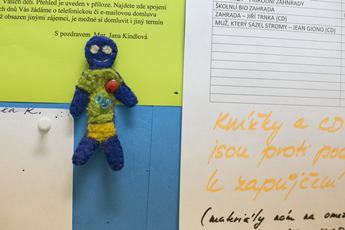 Vašich dětí. Přehled je uveden v příloze. Najdete zde spojení
dnů Vás žádáme o telefonickou či e-mailovou domluvu
obsazen jinými zájemci, je možné si domluvit i jiný termín
S pozdravem Mgr. Jana Kindlová
ZAHRADY
ŠKOLNÍ BIO ZAHRADA
ZAHRADA – JIŘÍ TRNKA (CD)
MUŽ, KTERÝ SÁZEL STROMY – JEAN GIONO (CD)
K.
Knížky a CD
jsou proti
k zapůjčení
(materiály nám na